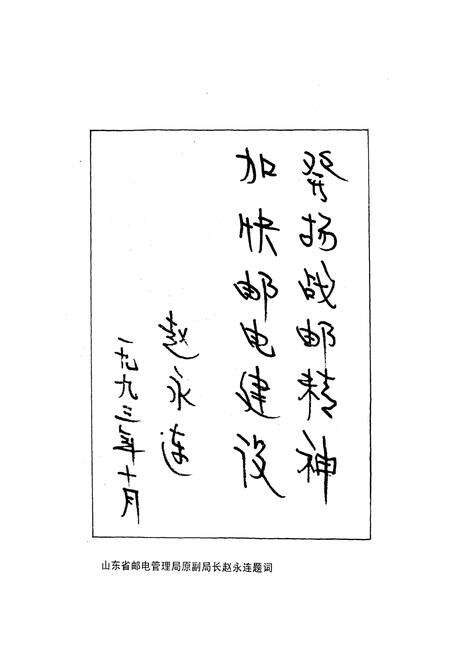 发扬战邮精神
加快邮电建设
赵永连
一九九三年十月
山东省邮电管理局原副局长赵永连题词